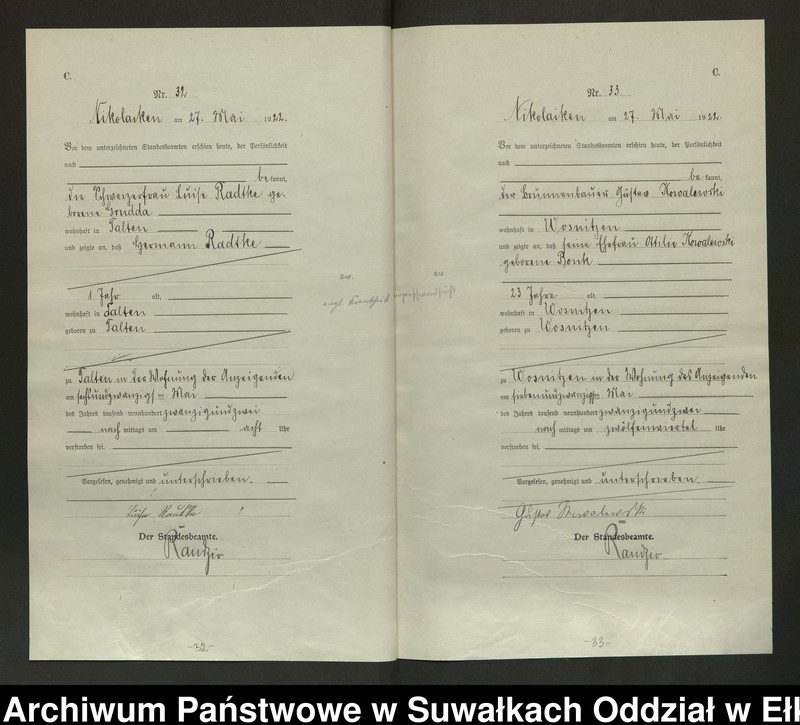 C.
Nr. 32
Nikolaiken am 27. Mai 1922.
Vor dem unterzeichneten Standesbeamten erschien heute, der Persönlichkeit
nach
be kannt,
die Schweizerfrau Luise Radtke ge-
borene Grudda
wohnhaft in Talten
und zeigte an, daß Hermann Radtke
1 Jahr alt,
wohnhaft in Talten
geboren zu Talten
zu Talten in der Wohnung der Anzeigenden
am sechsundzwanzigsten Mai
des Jahres tausend neunhundert zwanzigundzwei
nach mittags um acht Uhr
verstorben sei.
Vorgelesen, genehmigt und unterschrieben.
Luise Radtke
Der Standesbeamte.
Randzio
-32-
engl. Krankheit
C.
Nr. 33
Nikolaiken am 27. Mai 1922.
Vor dem unterzeichneten Standesbeamten erschien heute, der Persönlichkeit
nach
be kannt,
der Brunnenbauer Gustav Kowalewski
wohnhaft in Wosnitzen
und zeigte an, daß seine Ehefrau Ottilie Kowalewski
geborene Bonk
23 Jahre alt,
wohnhaft in Wosnitzen
geboren zu Wosnitzen
zu Wosnitzen in der Wohnung des Anzeigenden
am siebenundzwanzigsten Mai
des Jahres tausend neunhundert zwanzigundzwei
nach mittags um zwölfeinviertel Uhr
verstorben sei.
Vorgelesen, genehmigt und unterschrieben.
Gustav Kowalewski
Der Standesbeamte.
Randzio
-33-
Archiwum Państwowe w Suwałkach Oddział w Eł